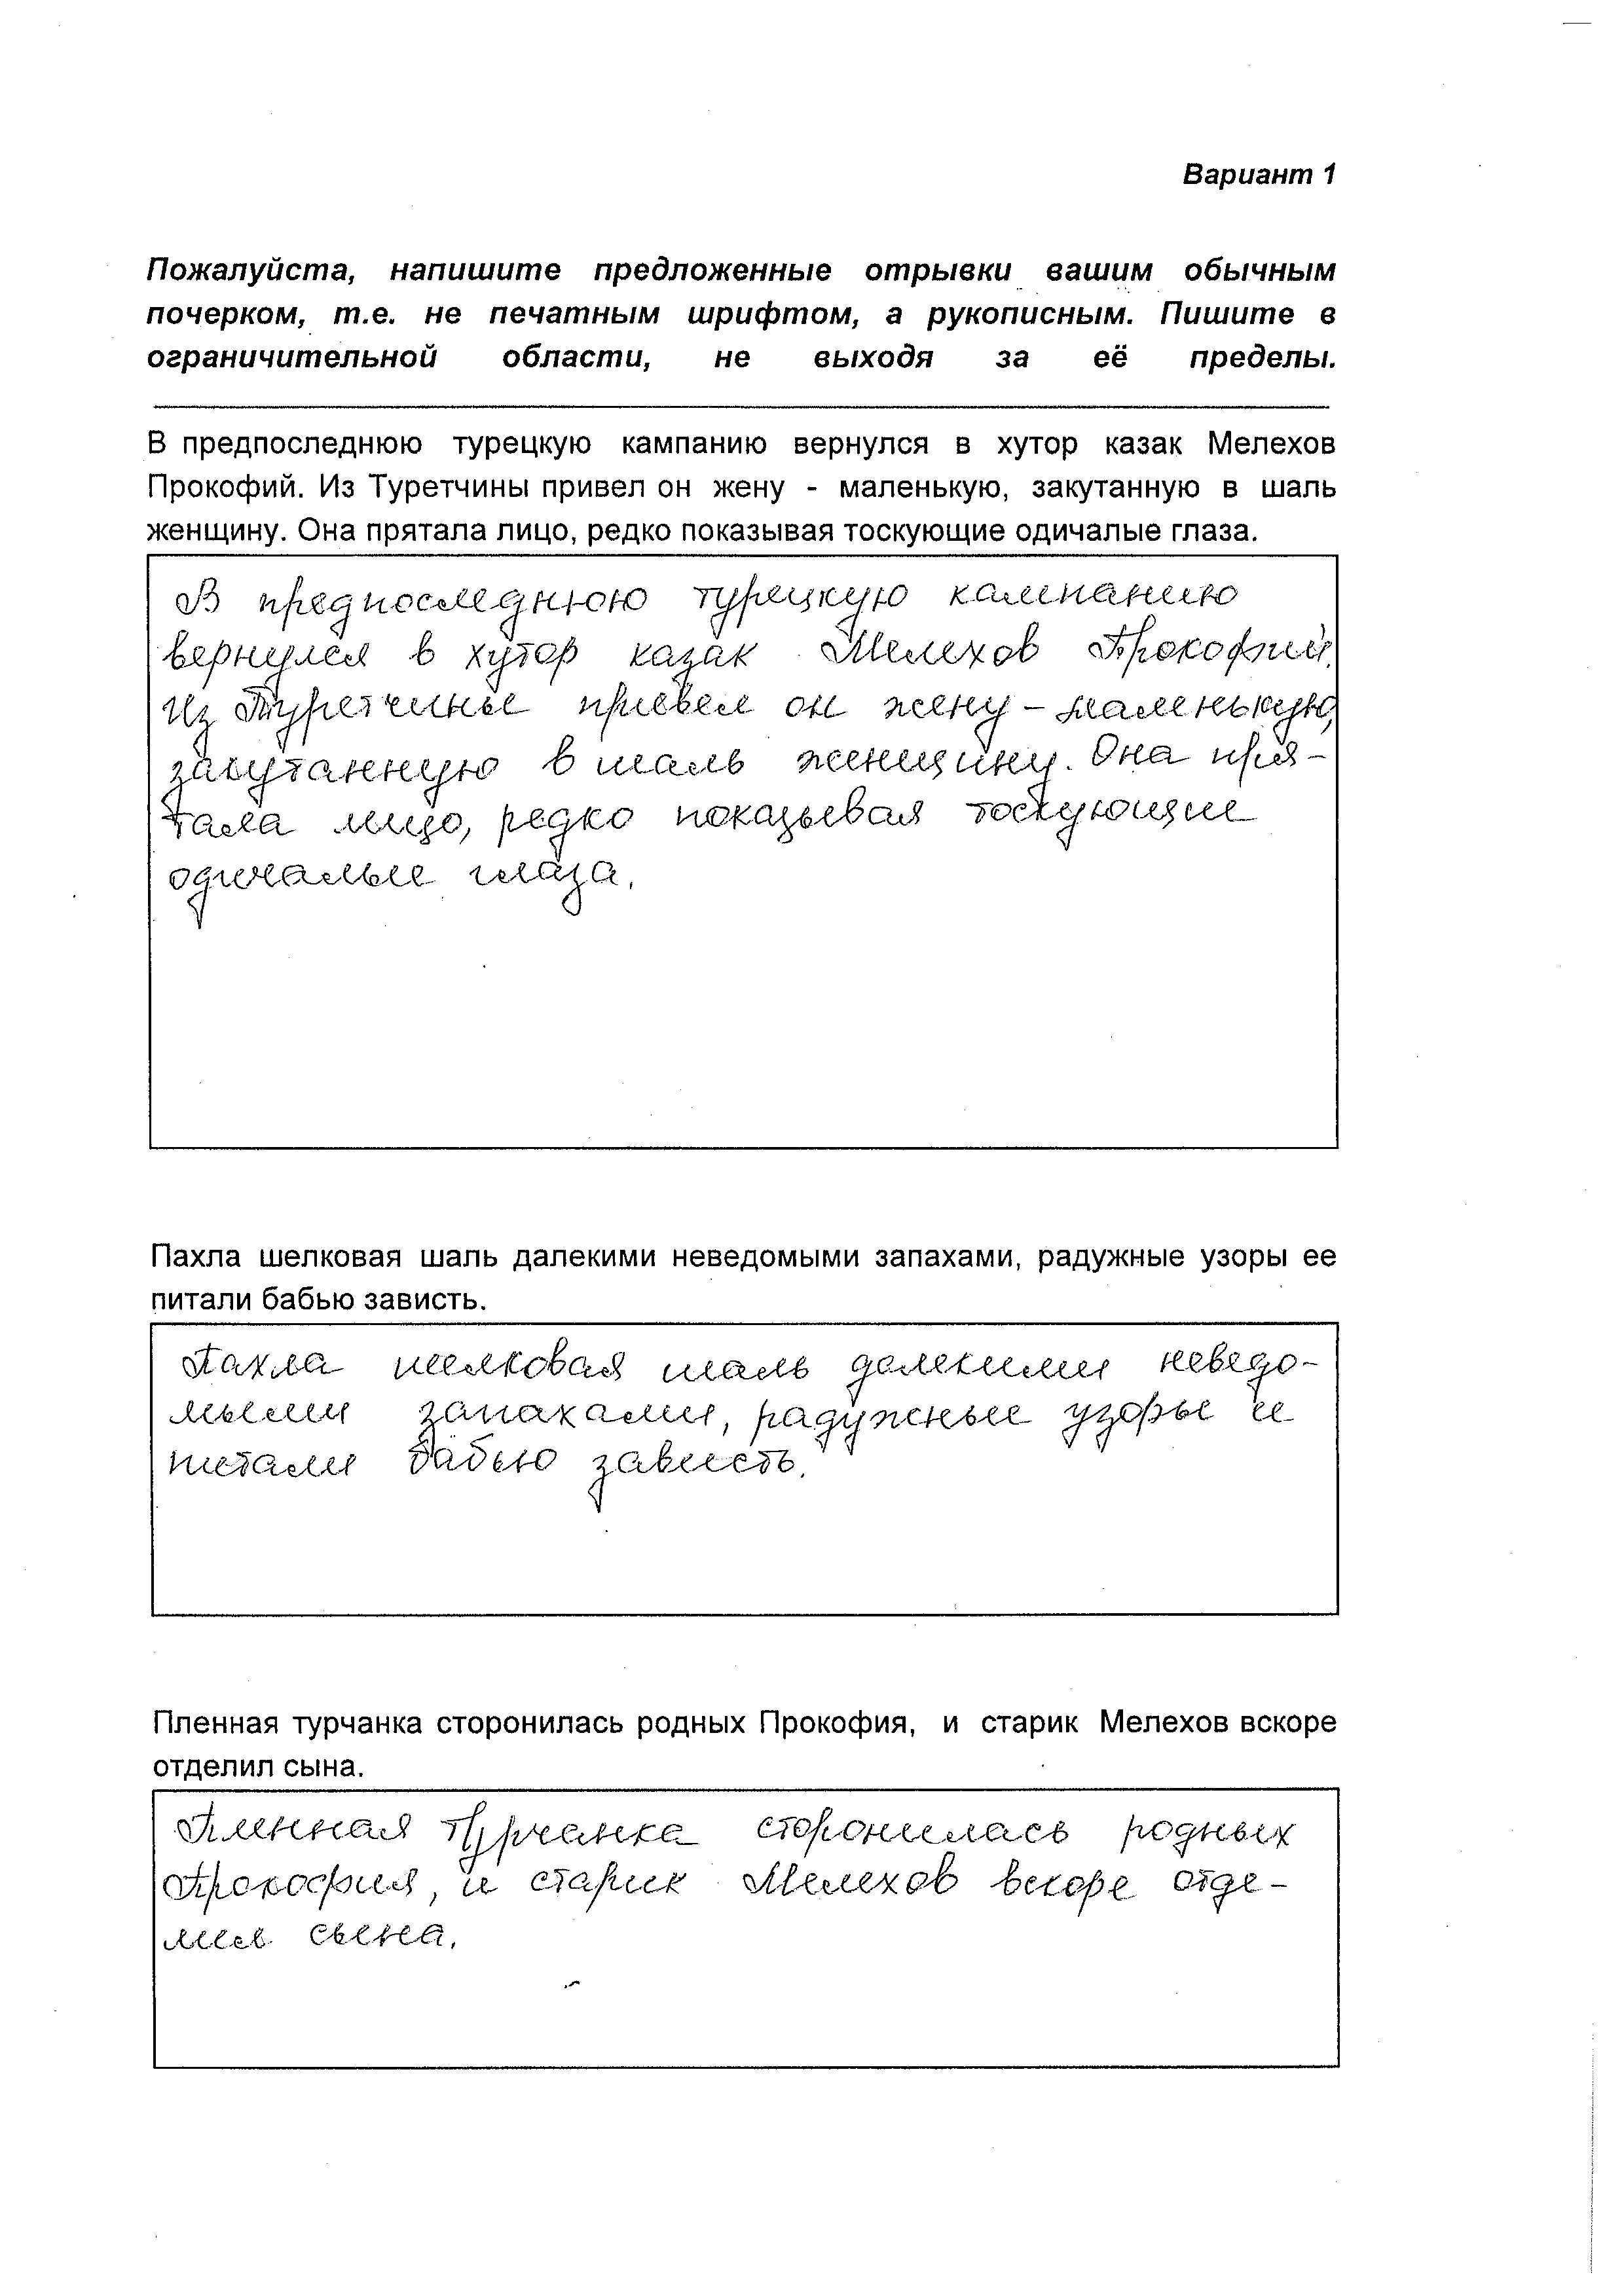 Вариант 1
Пожалуйста, напишите предложенные отрывки вашим обычным
почерком, т.е. не печатным шрифтом, а рукописным. Пишите в
ограничительной области, не выходя за её пределы.
В предпоследнюю турецкую кампанию вернулся в хутор казак Мелехов
Прокофий. Из Туретчины привел он жену - маленькую, закутанную в шаль
женщину. Она прятала лицо, редко показывая тоскующие одичалые глаза.
В предпоследнюю турецкую кампанию
вернулся в хутор казак Мелехов Прокофий.
Из Туретчины привел он жену – маленькую,
закутанную в шаль женщину. Она пря-
тала лицо, редко показывая тоскующие
одичалые глаза.
Пахла шелковая шаль далекими неведомыми запахами, радужные узоры ее
питали бабью зависть.
Пахла шелковая шаль далекими неведо-
мыми запахами, радужные узоры ее
питали бабью зависть.
Пленная турчанка сторонилась родных Прокофия, и старик Мелехов вскоре
отделил сына.
Пленная турчанка сторонилась родных
Прокофия, и старик Мелехов вскоре отде-
лил сына.